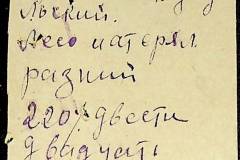 льский.
Лесо матерял
разний
220% двести
двадцать